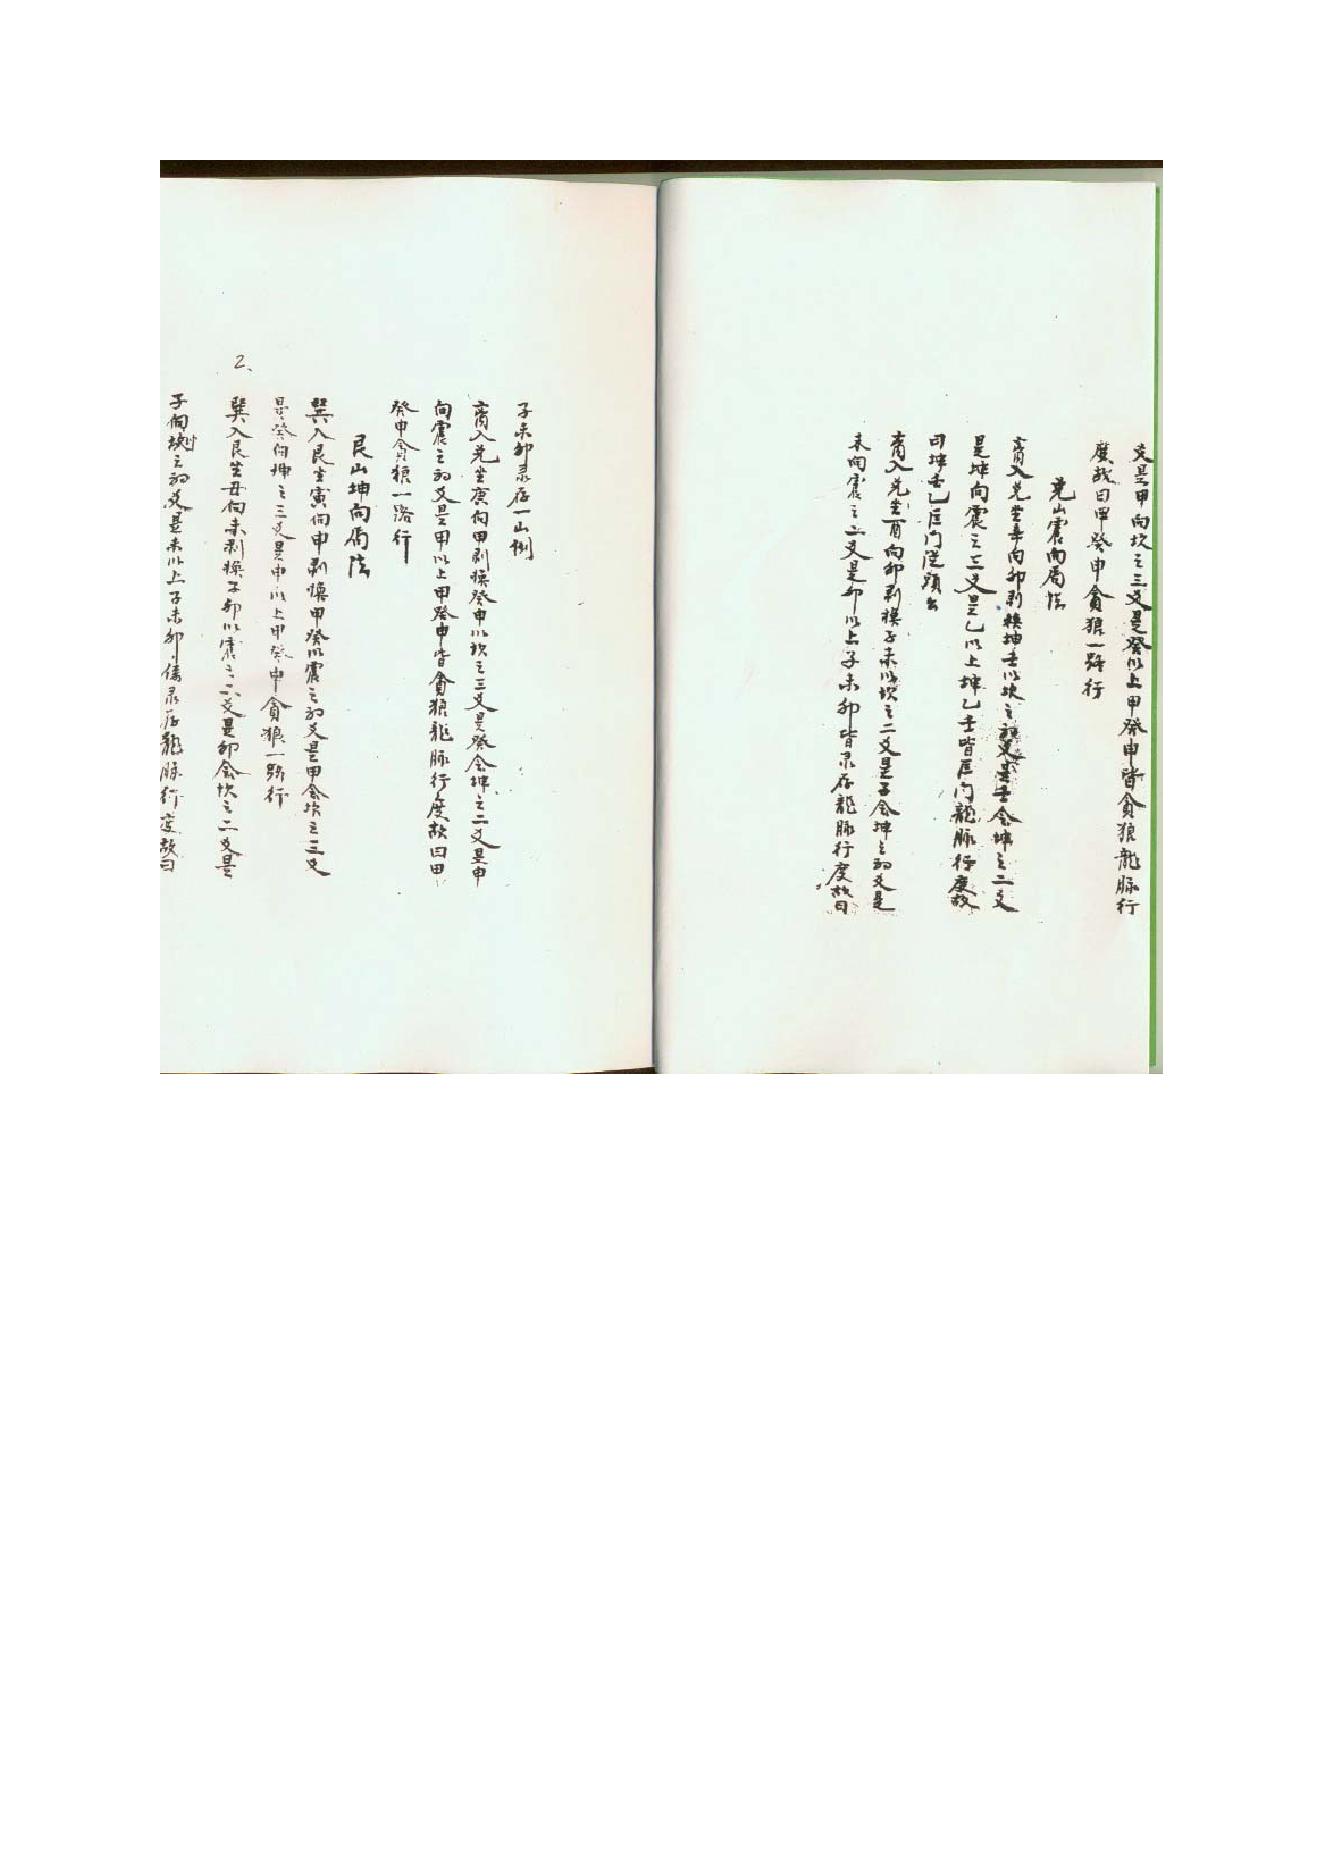 爻是甲向坎之三爻是癸以上甲癸申皆貪狼龍脉行
度故曰甲癸申貪狼一路行
兑山震向局法
入兑坐辛向卯剥換坤壬以坎之初爻是壬会坤之二爻
是坤向震之三爻是乙以上坤乙壬皆巨门龍脉行度故
曰坤壬乙巨门従頭出
入兑坐酉向卯剥換子未以坎之二爻是子会坤之初爻是
未向震之二爻是卯以上子未卯皆彔存龍脉行度故曰
子未卯彔存一山例
入兑坐庚向甲剥換癸申以坎之三爻是癸会坤之二爻是申
向震之初爻是甲以上甲癸申皆貪狼龍脉行度故曰甲
癸申貪狼一路行
艮山坤向局法
巽入艮坐寅向申剥换甲癸以震之初爻是甲会坎之三爻
是癸向坤之三爻是申以上甲癸申貪狼一路行
2、
巽入艮坐丑向未剥换子卯以震之二爻是卯会坎之二爻是
子向坎之初爻是未以上子未卯彔存龍脉行度故曰